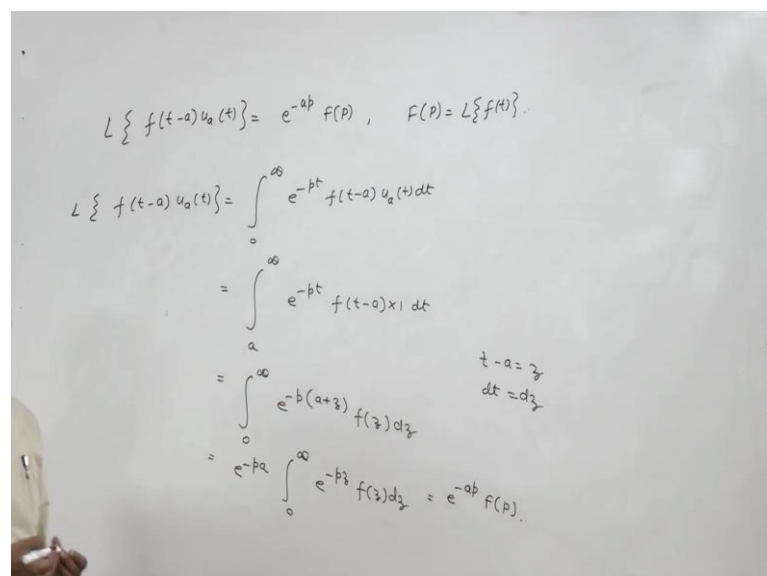 L{ f(t-a) u_a(t)} = e^{-ap} F(p), F(p) = L{f(t)}.
L{ f(t-a) u_a(t)} = ∫_0^∞ e^{-pt} f(t-a) u_a(t) dt
= ∫_a^∞ e^{-pt} f(t-a)×1 dt
t-a = z
dt = dz
= ∫_0^∞ e^{-p(a+z)} f(z) dz
= e^{-pa} ∫_0^∞ e^{-pz} f(z) dz = e^{-ap} F(p).